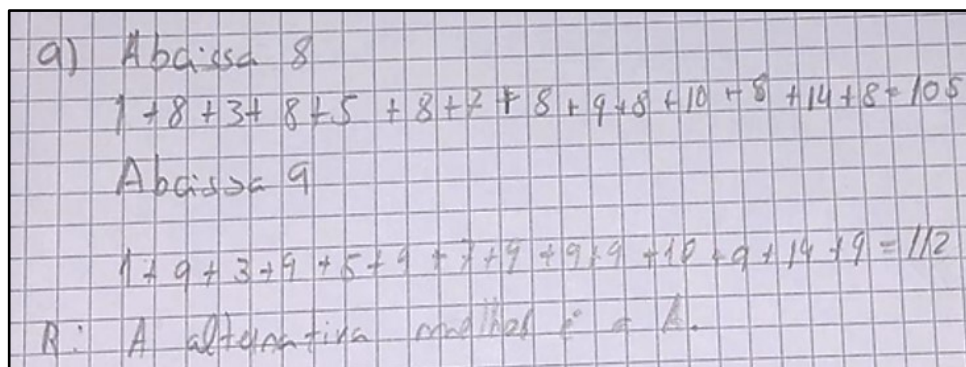 a) Abcissa 8
1+8+3+8+5+8+7+8+9+8+10+8+14+8=105
Abcissa 9
1+9+3+9+5+9+7+9+9+9+10+9+14+9=112
R: A alternativa melhor é a A.